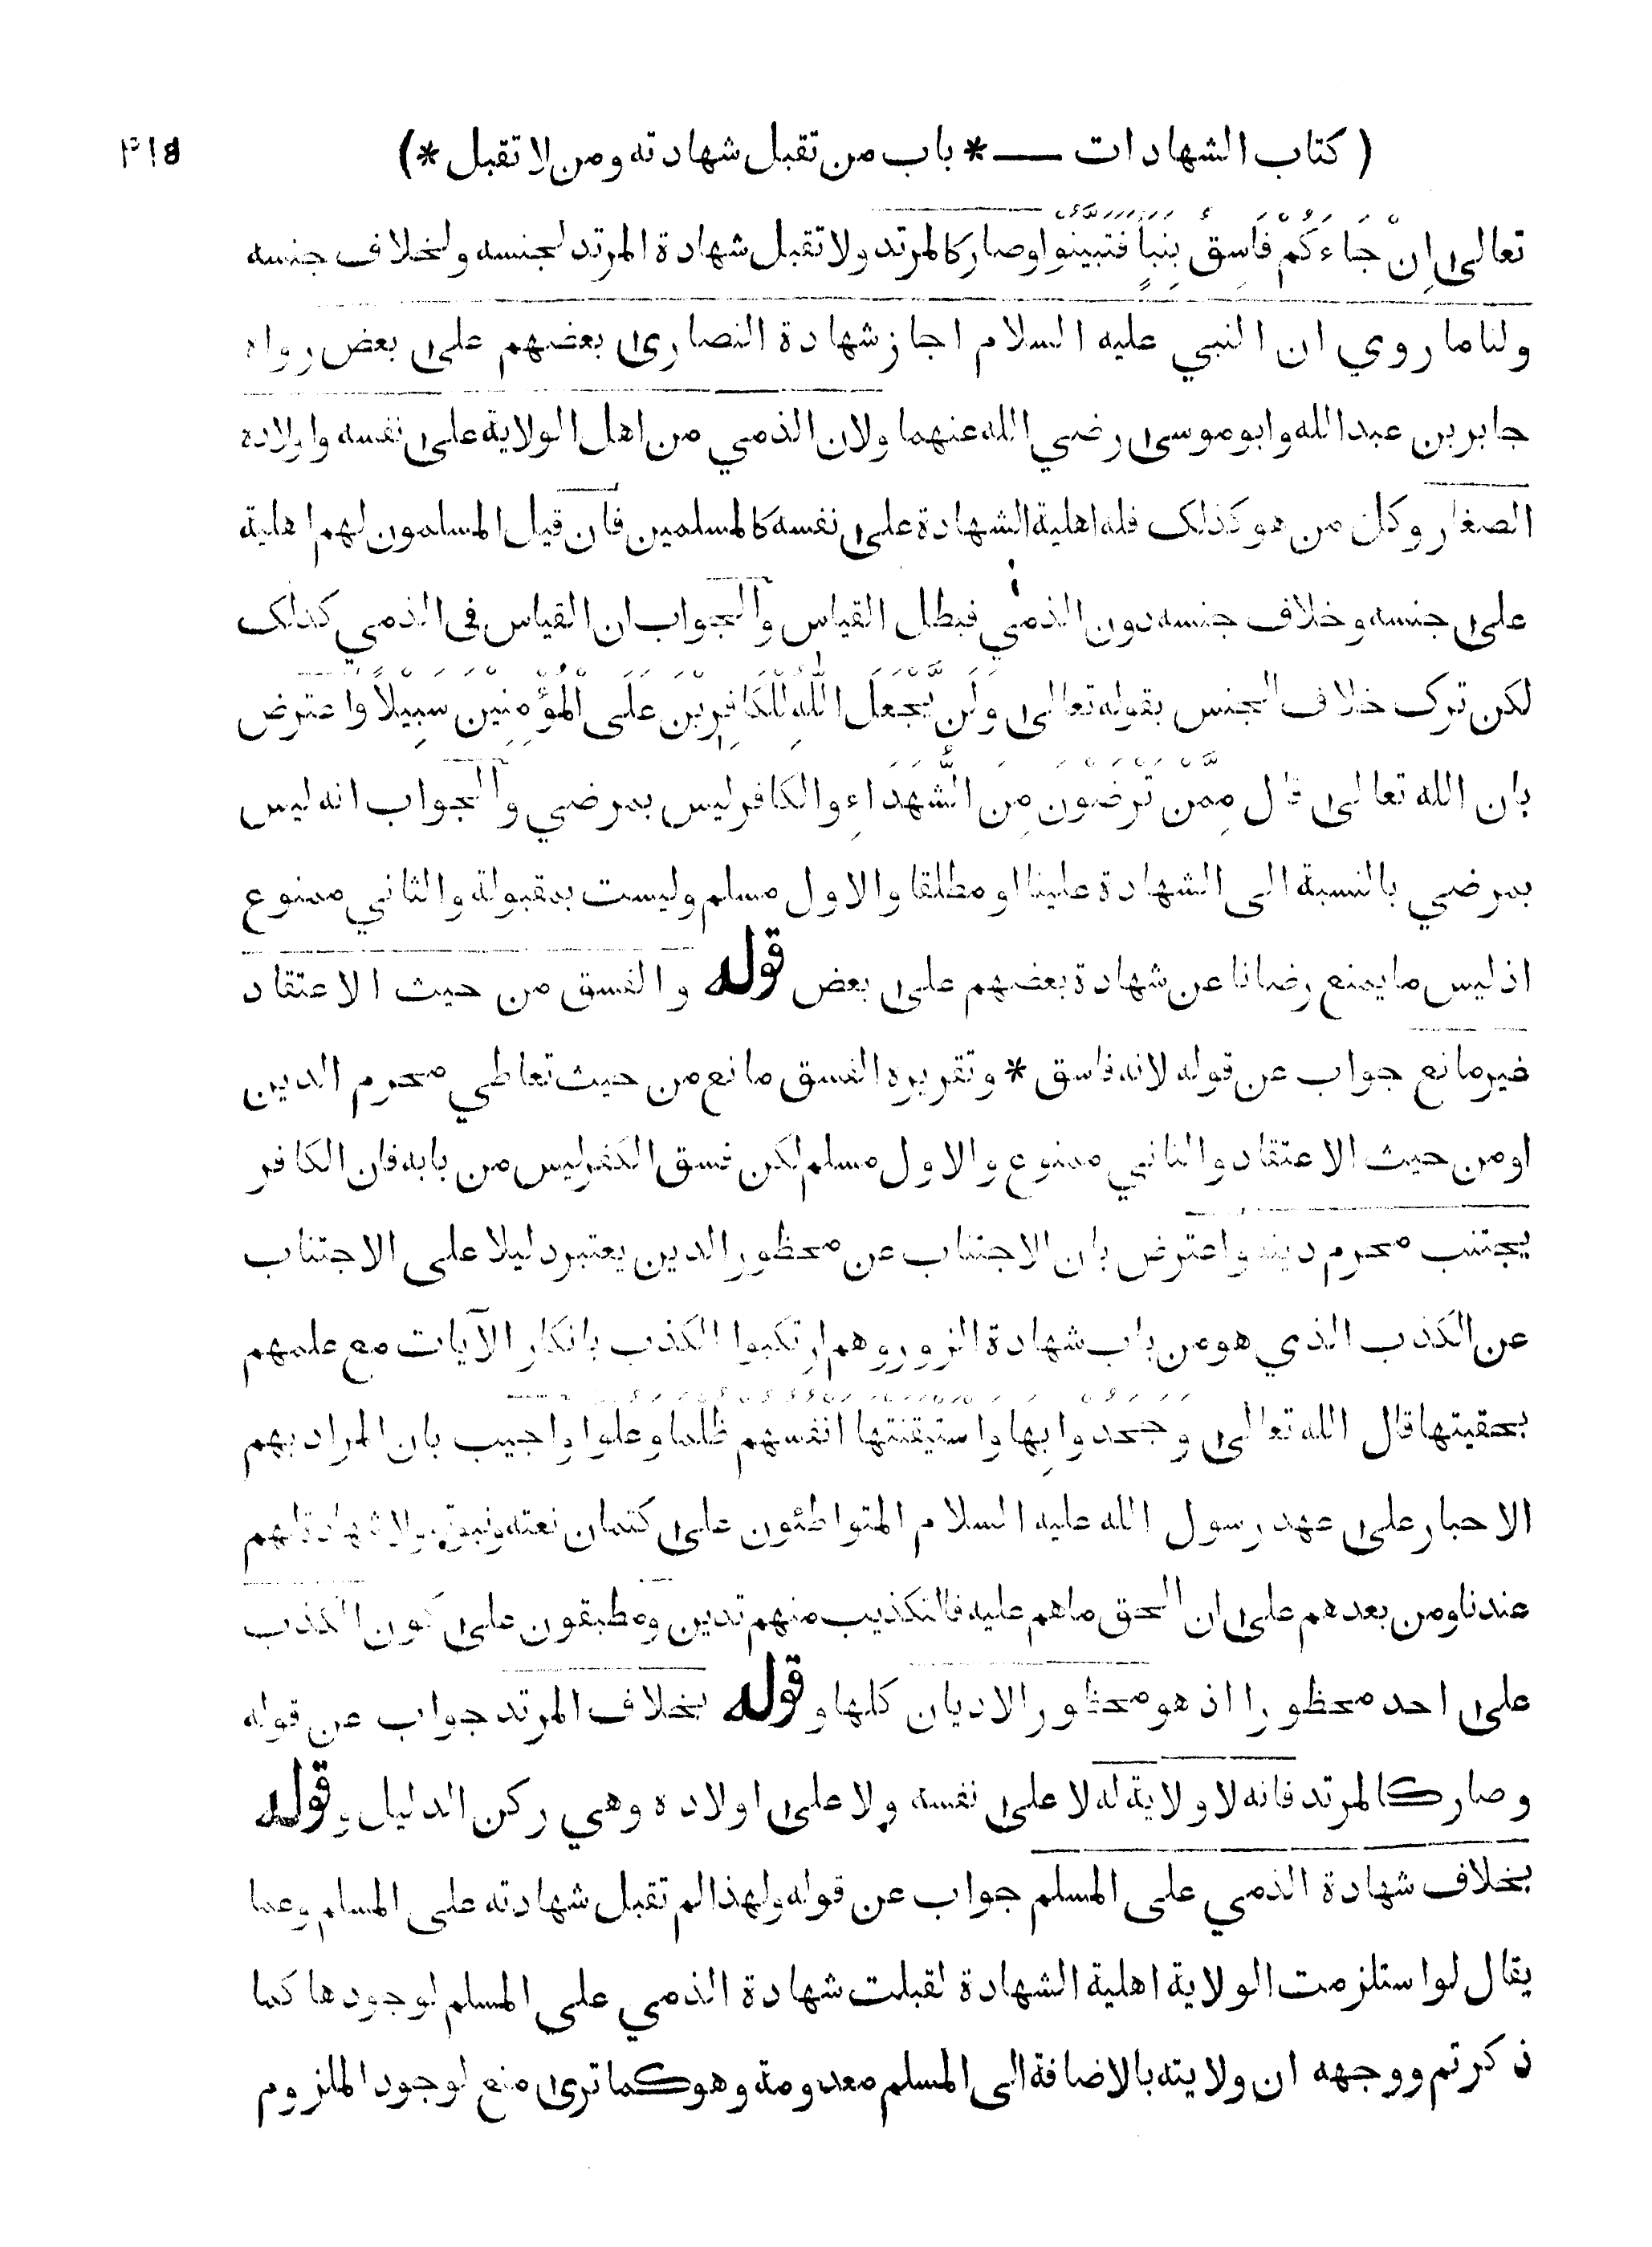 ( كتاب الشهادات —* باب من تقبل شهادته ومن لا تقبل *)
تعالى اِنْ جَاءَكُمْ فَاسِقٌ بِنَبَأٍ فتبينوا وصار كالمرتد ولا تقبل شهادة المرتد لجنسه ولخلاف جنسه
ولنا ما روي ان النبي عليه السلام اجاز شهادة النصارى بعضهم على بعض رواه
جابر بن عبد الله وابو موسى رضي الله عنهما ولان الذمي من اهل الولاية على نفسه واولاده
الصغار وكل من هو كذلك فله اهلية الشهادة على نفسه كالمسلمين فان قيل المسلمون لهم اهلية
على جنسه وخلاف جنسه دون الذمي فبطل القياس والجواب ان القياس في الذمي كذلك
لكن ترك خلاف الجنس بقوله تعالى وَلَنْ يَّجْعَلَ اللّٰهُ لِلْكَافِرِيْنَ عَلَى الْمُؤْمِنِيْنَ سَبِيْلًا واعترض
بان الله تعالى قال مِمَّنْ تَرْضَوْنَ مِنَ الشُّهَدَاءِ والكافر ليس بمرضي والجواب انه ليس
بمرضي بالنسبة الى الشهادة علينا او مطلقا والاول مسلم وليست بمقبولة والثاني ممنوع
اذ ليس ما يمنع رضانا عن شهادة بعضهم على بعض قوله والفسق من حيث الاعتقاد
غير مانع جواب عن قوله لانه فاسق * وتقريره الفسق مانع من حيث تعاطي محرم الدين
او من حيث الاعتقاد والثاني ممنوع والاول مسلم لكن فسق الكفر ليس من بابه فان الكافر
يجتنب محرم دينه واعترض بان الاجتناب عن محظور الدين يعتبر دليلا على الاجتناب
عن الكذب الذي هو من باب شهادة الزور وهم ارتكبوا الكذب بانكار الآيات مع علمهم
بحقيتها قال الله تعالى وَجَحَدُوا بِهَا وَاسْتَيْقَنَتْهَا انفسهم ظلما وعلوا واجيب بان المراد بهم
الاحبار على عهد رسول الله عليه السلام المتواطئون على كتمان نعته ونبوته ولا شهادة لهم
عندنا ومن بعدهم على ان الحق ما هم عليه فالتكذيب منهم تدين ومطبقون على كون الكذب
على احد محظورا اذ هو محظور الاديان كلها و قوله بخلاف المرتد جواب عن قوله
وصار كالمرتد فانه لا ولاية له لا على نفسه ولا على اولاده وهي ركن الدليل و قوله
بخلاف شهادة الذمي على المسلم جواب عن قوله ولهذا لم تقبل شهادته على المسلم وعما
يقال لو استلزمت الولاية اهلية الشهادة لقبلت شهادة الذمي على المسلم لوجودها كما
ذكرتم ووجهه ان ولايته بالاضافة الى المسلم معدومة وهو كما ترى منع لوجود الملزوم